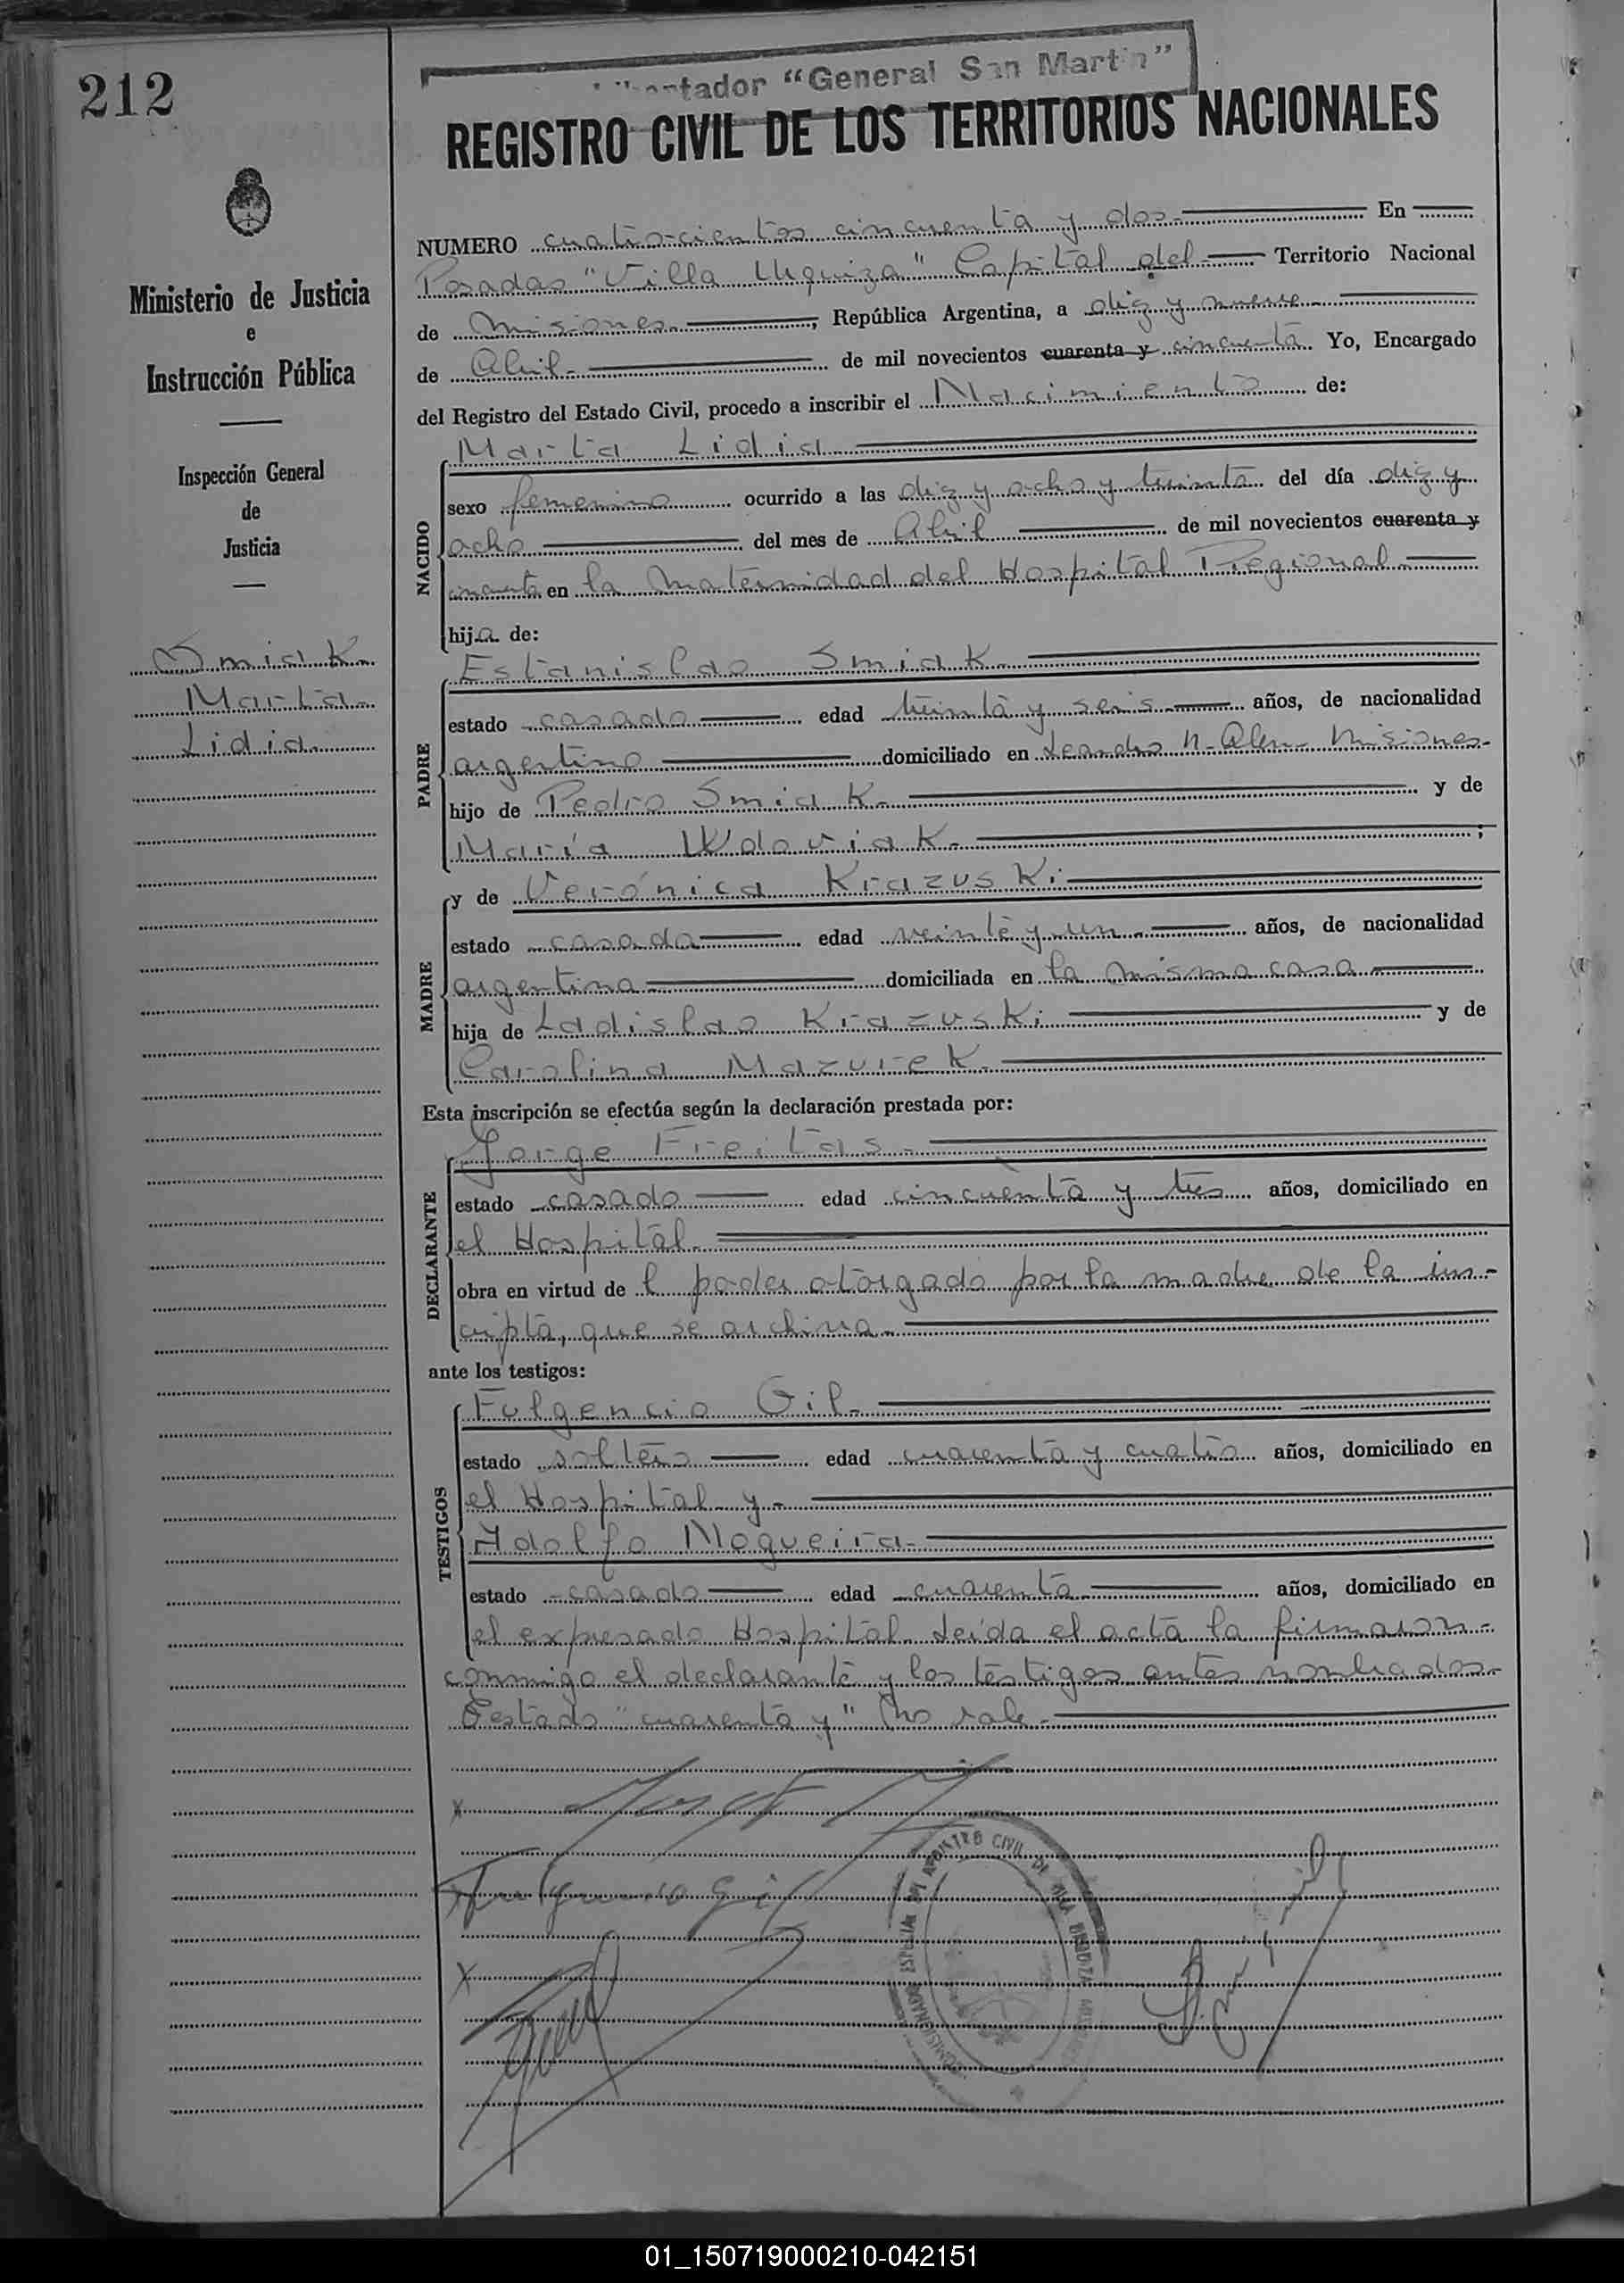 212
Libertador "General San Martín"
REGISTRO CIVIL DE LOS TERRITORIOS NACIONALES
Ministerio de Justicia
e
Instrucción Pública
Inspección General
de
Justicia
Smiak
Marta
Lidia
NUMERO cuatrocientos cincuenta y dos. En
Posadas "Villa Urquiza" Capital del Territorio Nacional
de Misiones, República Argentina, a diez y nueve
de Abril de mil novecientos cuarenta y cincuenta Yo, Encargado
del Registro del Estado Civil, procedo a inscribir el Nacimiento de:
NACIDO
Marta Lidia
sexo femenino ocurrido a las diez y ocho y treinta del día diez y
ocho del mes de Abril de mil novecientos cuarenta y
cincuenta en la Maternidad del Hospital Regional
hija de:
PADRE
Estanislao Smiak
estado casado edad treinta y seis años, de nacionalidad
argentino domiciliado en Leandro N. Alem Misiones
hijo de Pedro Smiak y de
María Wdoviak ;
MADRE
y de Verónica Krazuski
estado casada edad veinte y un años, de nacionalidad
argentina domiciliada en la misma casa
hija de Ladislao Krazuski y de
Carolina Mazurek
Esta inscripción se efectúa según la declaración prestada por:
DECLARANTE
Jorge Freitas
estado casado edad cincuenta y tres años, domiciliado en
el Hospital
obra en virtud de l poder otorgado por la madre de la ins-
cripta, que se archiva.
ante los testigos:
TESTIGOS
Fulgencio Gil
estado soltero edad cuarenta y cuatro años, domiciliado en
el Hospital y
Adolfo Nogueira
estado casado edad cuarenta años, domiciliado en
el expresado Hospital. Leída el acta la firmaron
conmigo el declarante y los testigos antes nombrados.
Testado "cuarenta y" No vale.
Fulgencio Gil
REGISTRO CIVIL DE VILLA URQUIZA
01_150719000210-042151